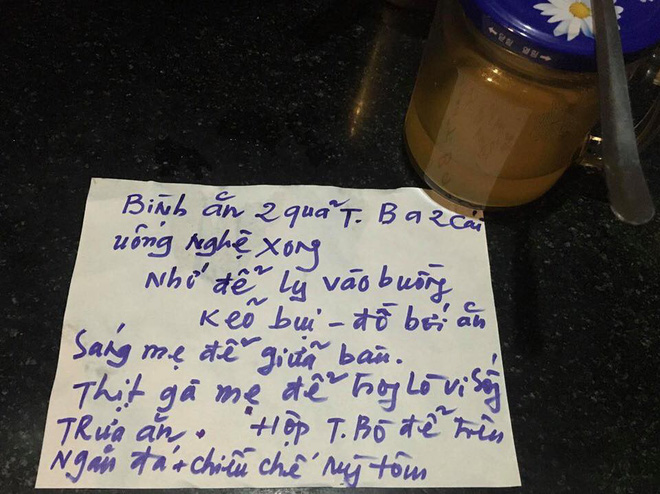 Bình ăn 2 quả T. Ba 2 cái
uống nghệ xong
Nhớ để ly vào buồng
kẽo bụi - đồ bơi ăn
Sáng mẹ để giữa bàn.
Thịt gà mẹ để trong lò vi sóng
Trưa ăn. + Hộp T. Bò để trên
Ngăn đá + chiều chế mỳ tôm